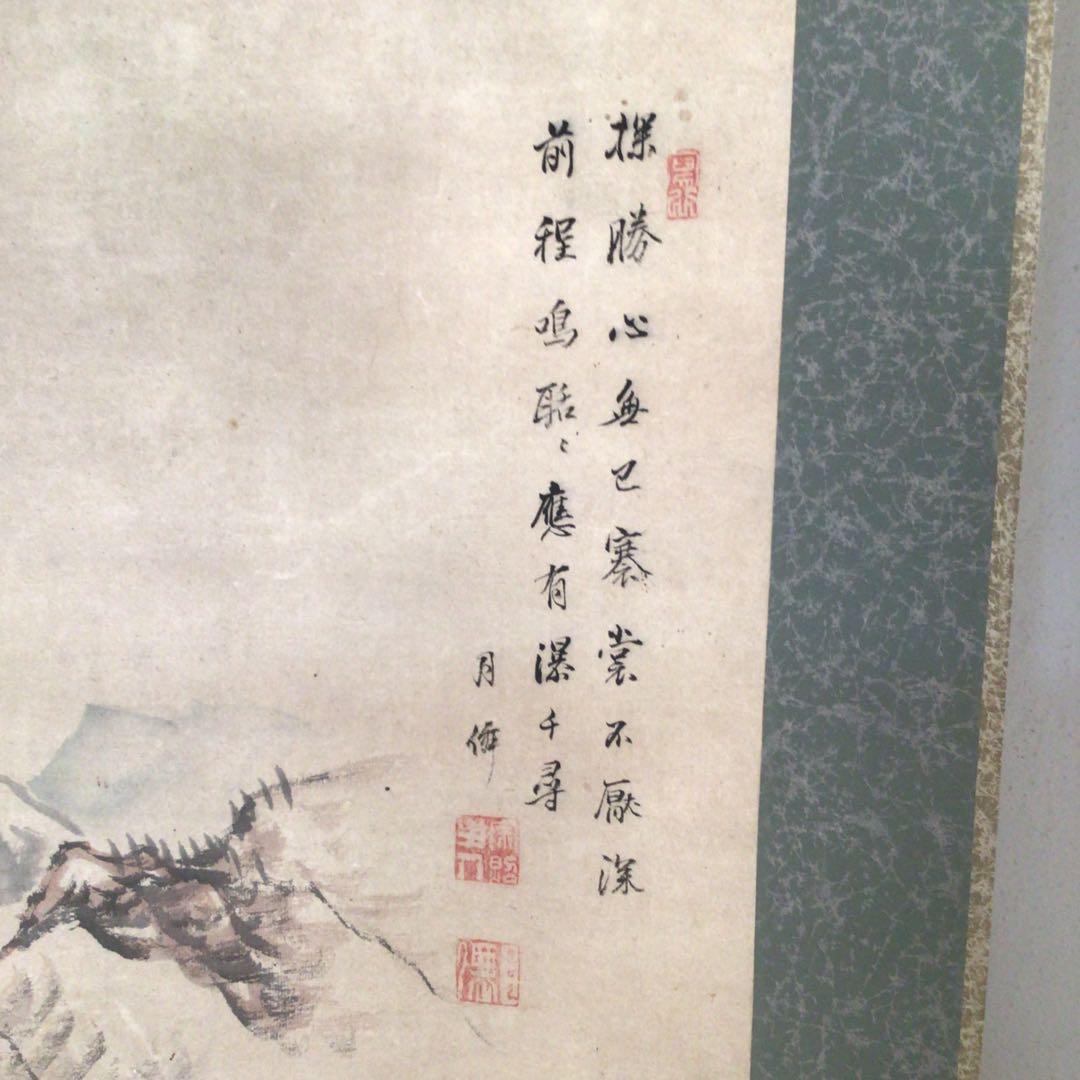 探勝心無已褰裳不厭深
前程鳴聒〻應有瀑千尋
月僊